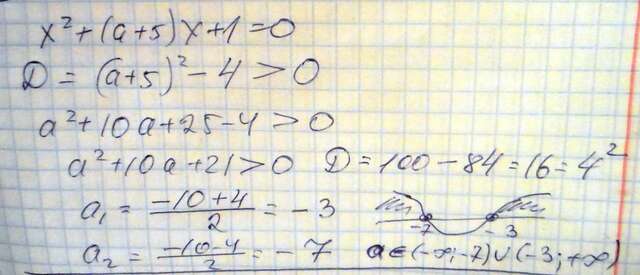 x² + (a+5)x+1=0
D = (a+5)² - 4 > 0
a² + 10a + 25 - 4 > 0
a² + 10a + 21 > 0 D = 100 - 84 = 16 = 4²
a₁ = (-10 + 4)/2 = -3
-7 -3
a₂ = (-10-4)/2 = -7 a ∈ (-∞; -7) ∪ (-3; +∞)